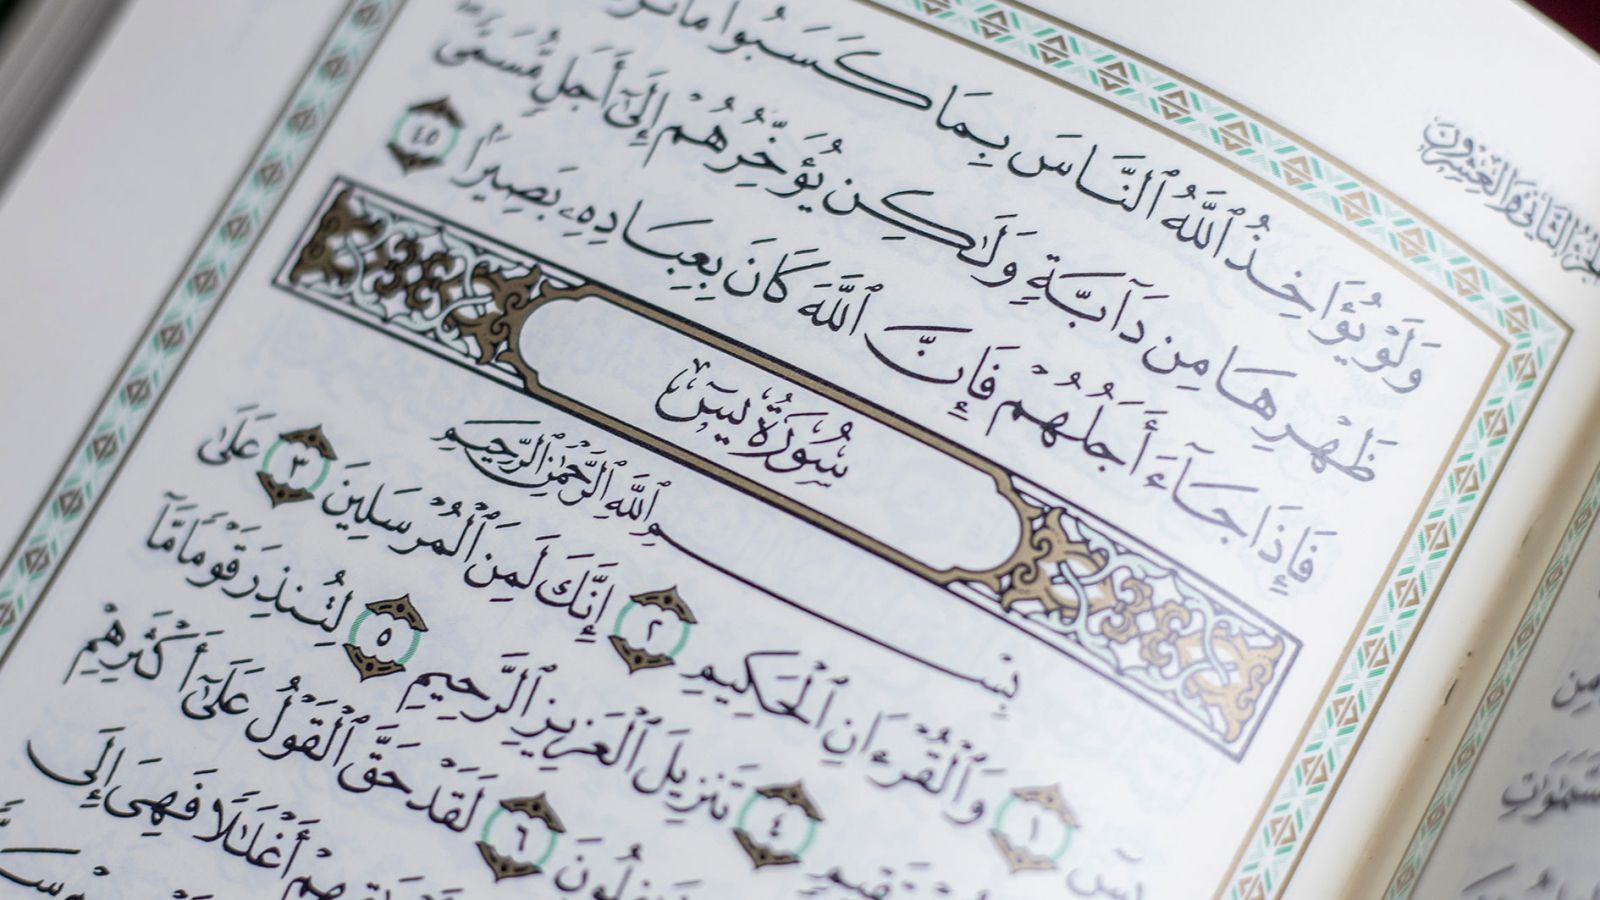 الجزء الثاني والعشرون
وَلَوْ يُؤَاخِذُ ٱللَّهُ ٱلنَّاسَ بِمَا كَسَبُوا۟ مَا تَرَكَ
ظَهْرِهَا مِن دَآبَّةٍ وَلَٰكِن يُؤَخِّرُهُمْ إِلَىٰٓ أَجَلٍ مُّسَمًّى
فَإِذَا جَآءَ أَجَلُهُمْ فَإِنَّ ٱللَّهَ كَانَ بِعِبَادِهِۦ بَصِيرًۢا ٤٥
سُورَةُ يسٓ
بِسْمِ ٱللَّهِ ٱلرَّحْمَٰنِ ٱلرَّحِيمِ
يسٓ ١ وَٱلْقُرْءَانِ ٱلْحَكِيمِ ٢ إِنَّكَ لَمِنَ ٱلْمُرْسَلِينَ ٣ عَلَىٰ
٤ تَنزِيلَ ٱلْعَزِيزِ ٱلرَّحِيمِ ٥ لِتُنذِرَ قَوْمًا مَّآ
٦ لَقَدْ حَقَّ ٱلْقَوْلُ عَلَىٰٓ أَكْثَرِهِمْ
أَغْلَٰلًا فَهِىَ إِلَى
مِن